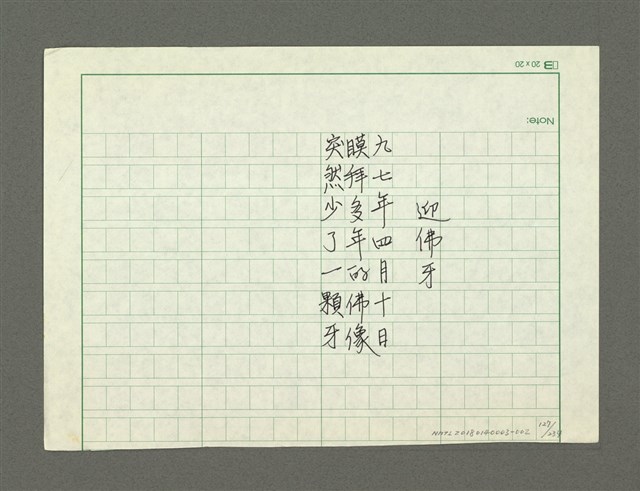 迎佛牙
九七年四月十日
膜拜多年的佛像
突然少了一顆牙
Note:
20×20
NMTL20180140003-002
127/239